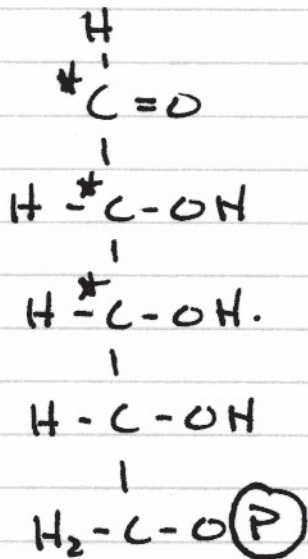 H
* C = O
H - * C - OH
H - * C - OH.
H - C - OH
H₂ - C - O P